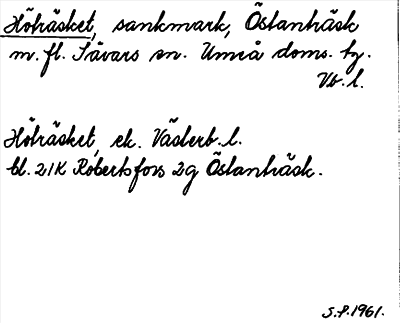 Höträsket, sankmark, Östanträsk
m.fl. Sävars sn. Umeå doms. tg.
Vb.l.
Höträsket, ek. Västerb.l.
bl. 21K Robertsfors 2g Östanträsk.
S.P.1961.